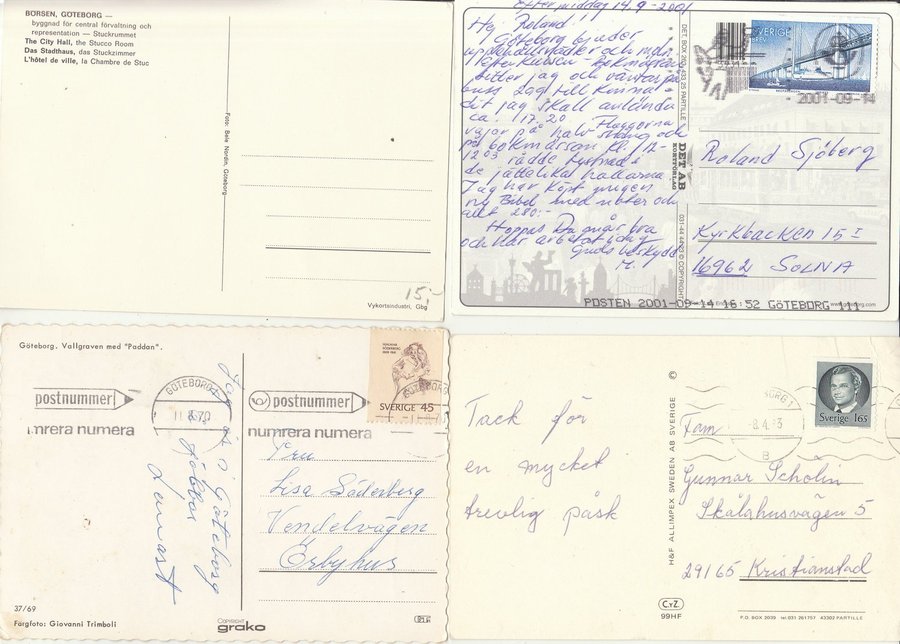 BÖRSEN, GÖTEBORG —
byggnad för central förvaltning och
representation — Stuckrummet
The City Hall, the Stucco Room
Das Stadthaus, das Stuckzimmer
L'hôtel de ville, la Chambre de Stuc
Foto: Bele Nordin, Göteborg
15,-
Vykortsindustri, Gbg
Eftermiddag 14.9 - 2001
Hej Roland!
Göteborg bjuder
uppehållsväder och
sitter jag och väntar på
buss 2ag till
dit jag skall anlända
ca! 17.20 Flaggorna
vajar på halv stång och
på bokmässan kl. 12-
12 03 rådde tystnad i
de jättelika hallarna
Jag har köpt mig en
ny Bibel med noter och
allt 280:-
Hoppas Du mår bra
och har arbetat idag
Guds beskydd
M.
DET AB
KORTFÖRLAG
SVERIGE
BREV
2001-09-14
Roland Sjöberg
Kyrkbacken 15 I
16962 SOLNA
POSTEN 2001-09-14 16:52 GÖTEBORG 111
Göteborg. Vallgraven med "Paddan".
postnummer
numrera
GÖTEBORG
70
postnummer
numrera numera
SVERIGE 45
i Göteborg
jobbar
Lennart
Fru
Lisa Söderberg
Vendelvägen
Örbyhus
37/69
Färgfoto: Giovanni Trimboli
COPYRIGHT
grako
Tack för
en mycket
trevlig påsk
H&F ALLIMPEX SWEDEN AB SVERIGE ©
Sverige 165
B
Fam
Gunnar Scholin
Skålahusvägen 5
29165 Kristianstad
C.v.Z.
99HF
P.O. BOX 2039 tel.031 261757 43302 PARTILLE